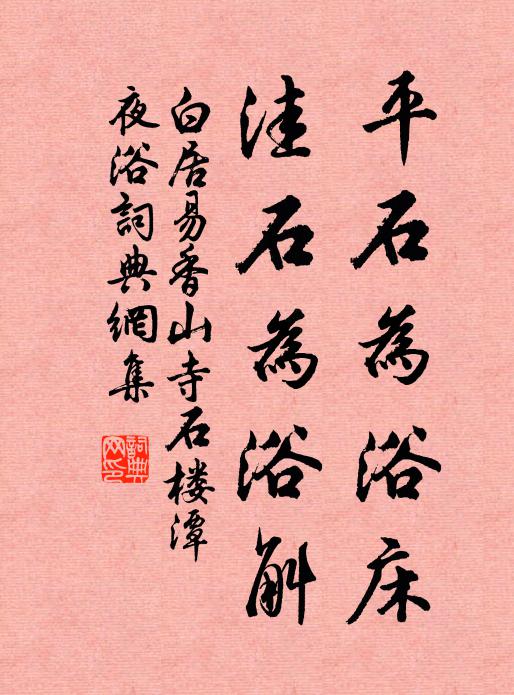 平石為浴床
洼石為浴斛
白居易香山寺石楼潭
夜浴詞典網集
詞典网印